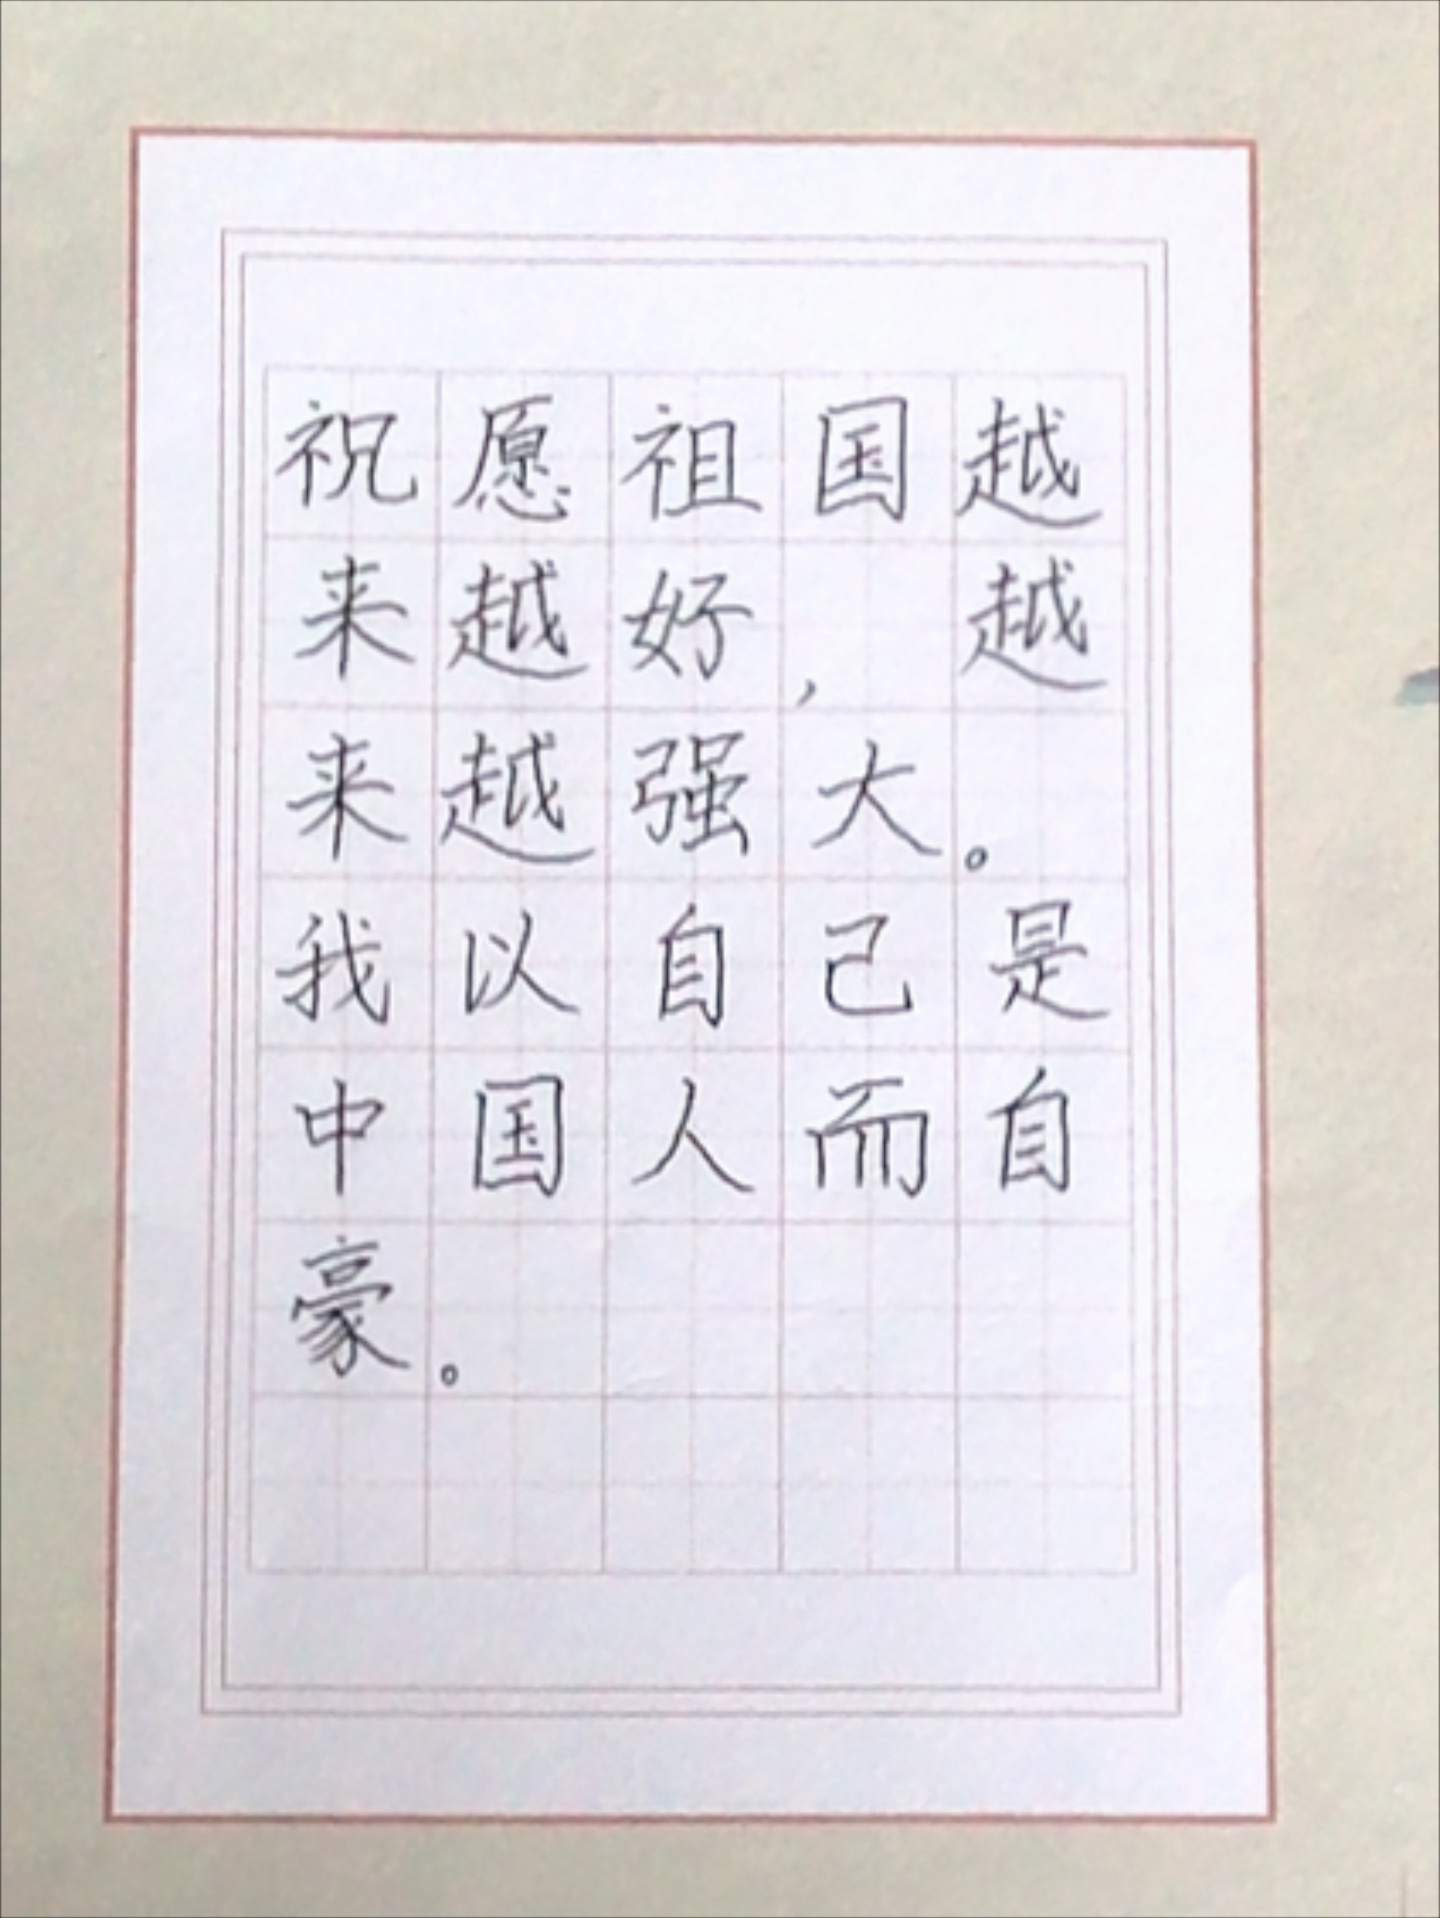 祝愿祖国越
来越好，越
来越强大。
我以自己是
中国人而自
豪。